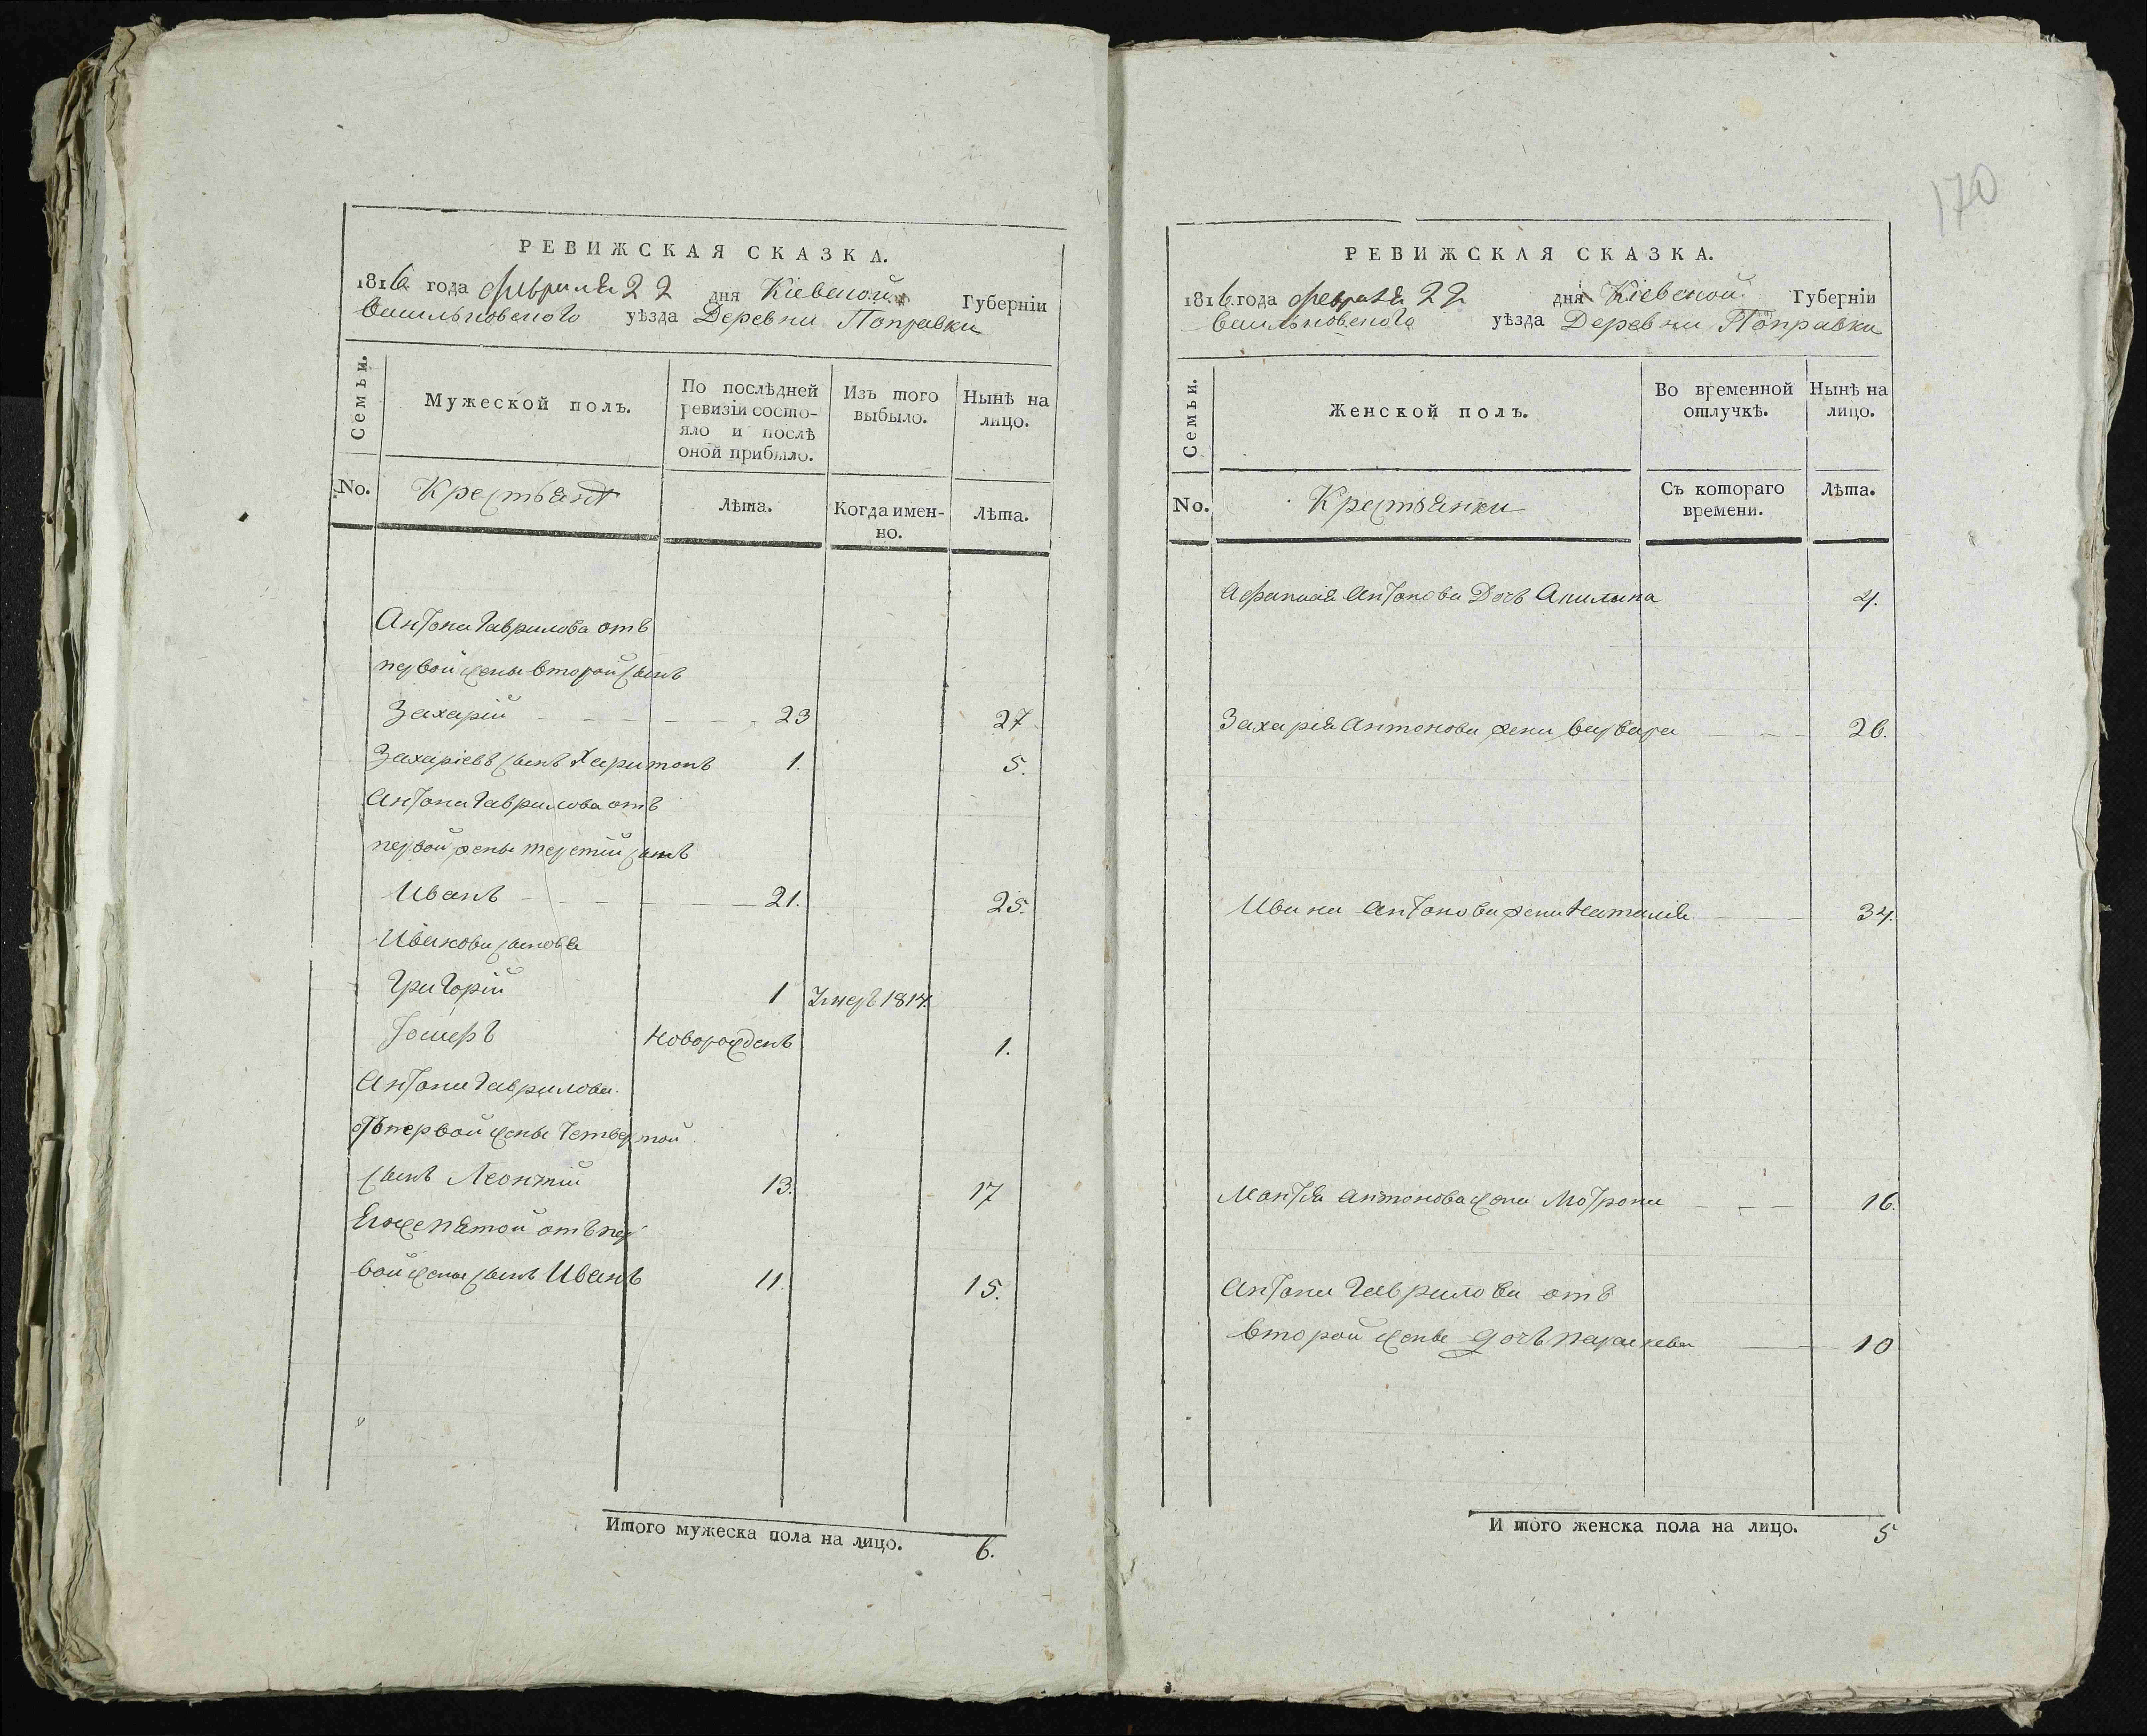 170
РЕВИЖСКАЯ СКАЗКА.
1816 года февраля 22 дня Кіевской Губерніи
Васильковского уѣзда Деревни Поправки
Семьи.
Мужеской полъ.
По послѣдней ревизіи состо-
яло и послѣ оной прибыло.
Изъ того выбыло.
Нынѣ на лицо.
No.
Крестьянъ
Лѣта.
Когда имен-
но.
Лѣта.
Антона Гаврилова отъ
первой жены второй сынъ
Захарій 23 27
Захаріевъ сынъ Харитонъ 1. 5.
Антона Гаврилова отъ
первой жены третій сынъ
Иванъ 21. 25.
Ивановы сыновья
Григорій 1 Умеръ 1814.
Іосифъ новорожденъ 1.
Антона Гаврилова
отъ первой жены четвертой
сынъ Леонтій 13. 17
Егоже пятой отъ пер
вой жены сынъ Иванъ 11. 15.
Итого мужеска пола на лицо. 6.
РЕВИЖСКАЯ СКАЗКА.
1816 года февраля 22 дня Кіевской Губерніи
Васильковского уѣзда Деревни Поправки
Семьи.
Женской полъ.
Во временной отлучкѣ.
Нынѣ на лицо.
No.
Крестьянки
Съ котораго времени.
Лѣта.
Антонова Дочь Акилина 4.
Захарія Антонова жена Варвара 26.
Ивана Антонова жена Наталія 34.
Леонтія Антонова жена Мотрона 16.
Антона Гаврилова отъ
второй жены дочь Параскева 10
И того женска пола на лицо. 5